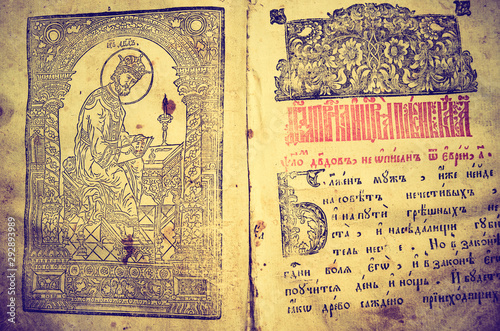 црь дв҃дъ
дв҃довъ, не ѡписанъ ѿ еврей, а҃.
Блаженъ мужъ, иже неиде
насовѣтъ нечестивыхъ
и напути грѣшныхъ не
ста, и насѣдалищи губи
тель несѣде. Но в законѣ
гд҃ни воля єгѡ, и в законѣ єгѡ
поучится день и нощь. И будет
ꙗкѡ древо саждено приисходящих
292893989